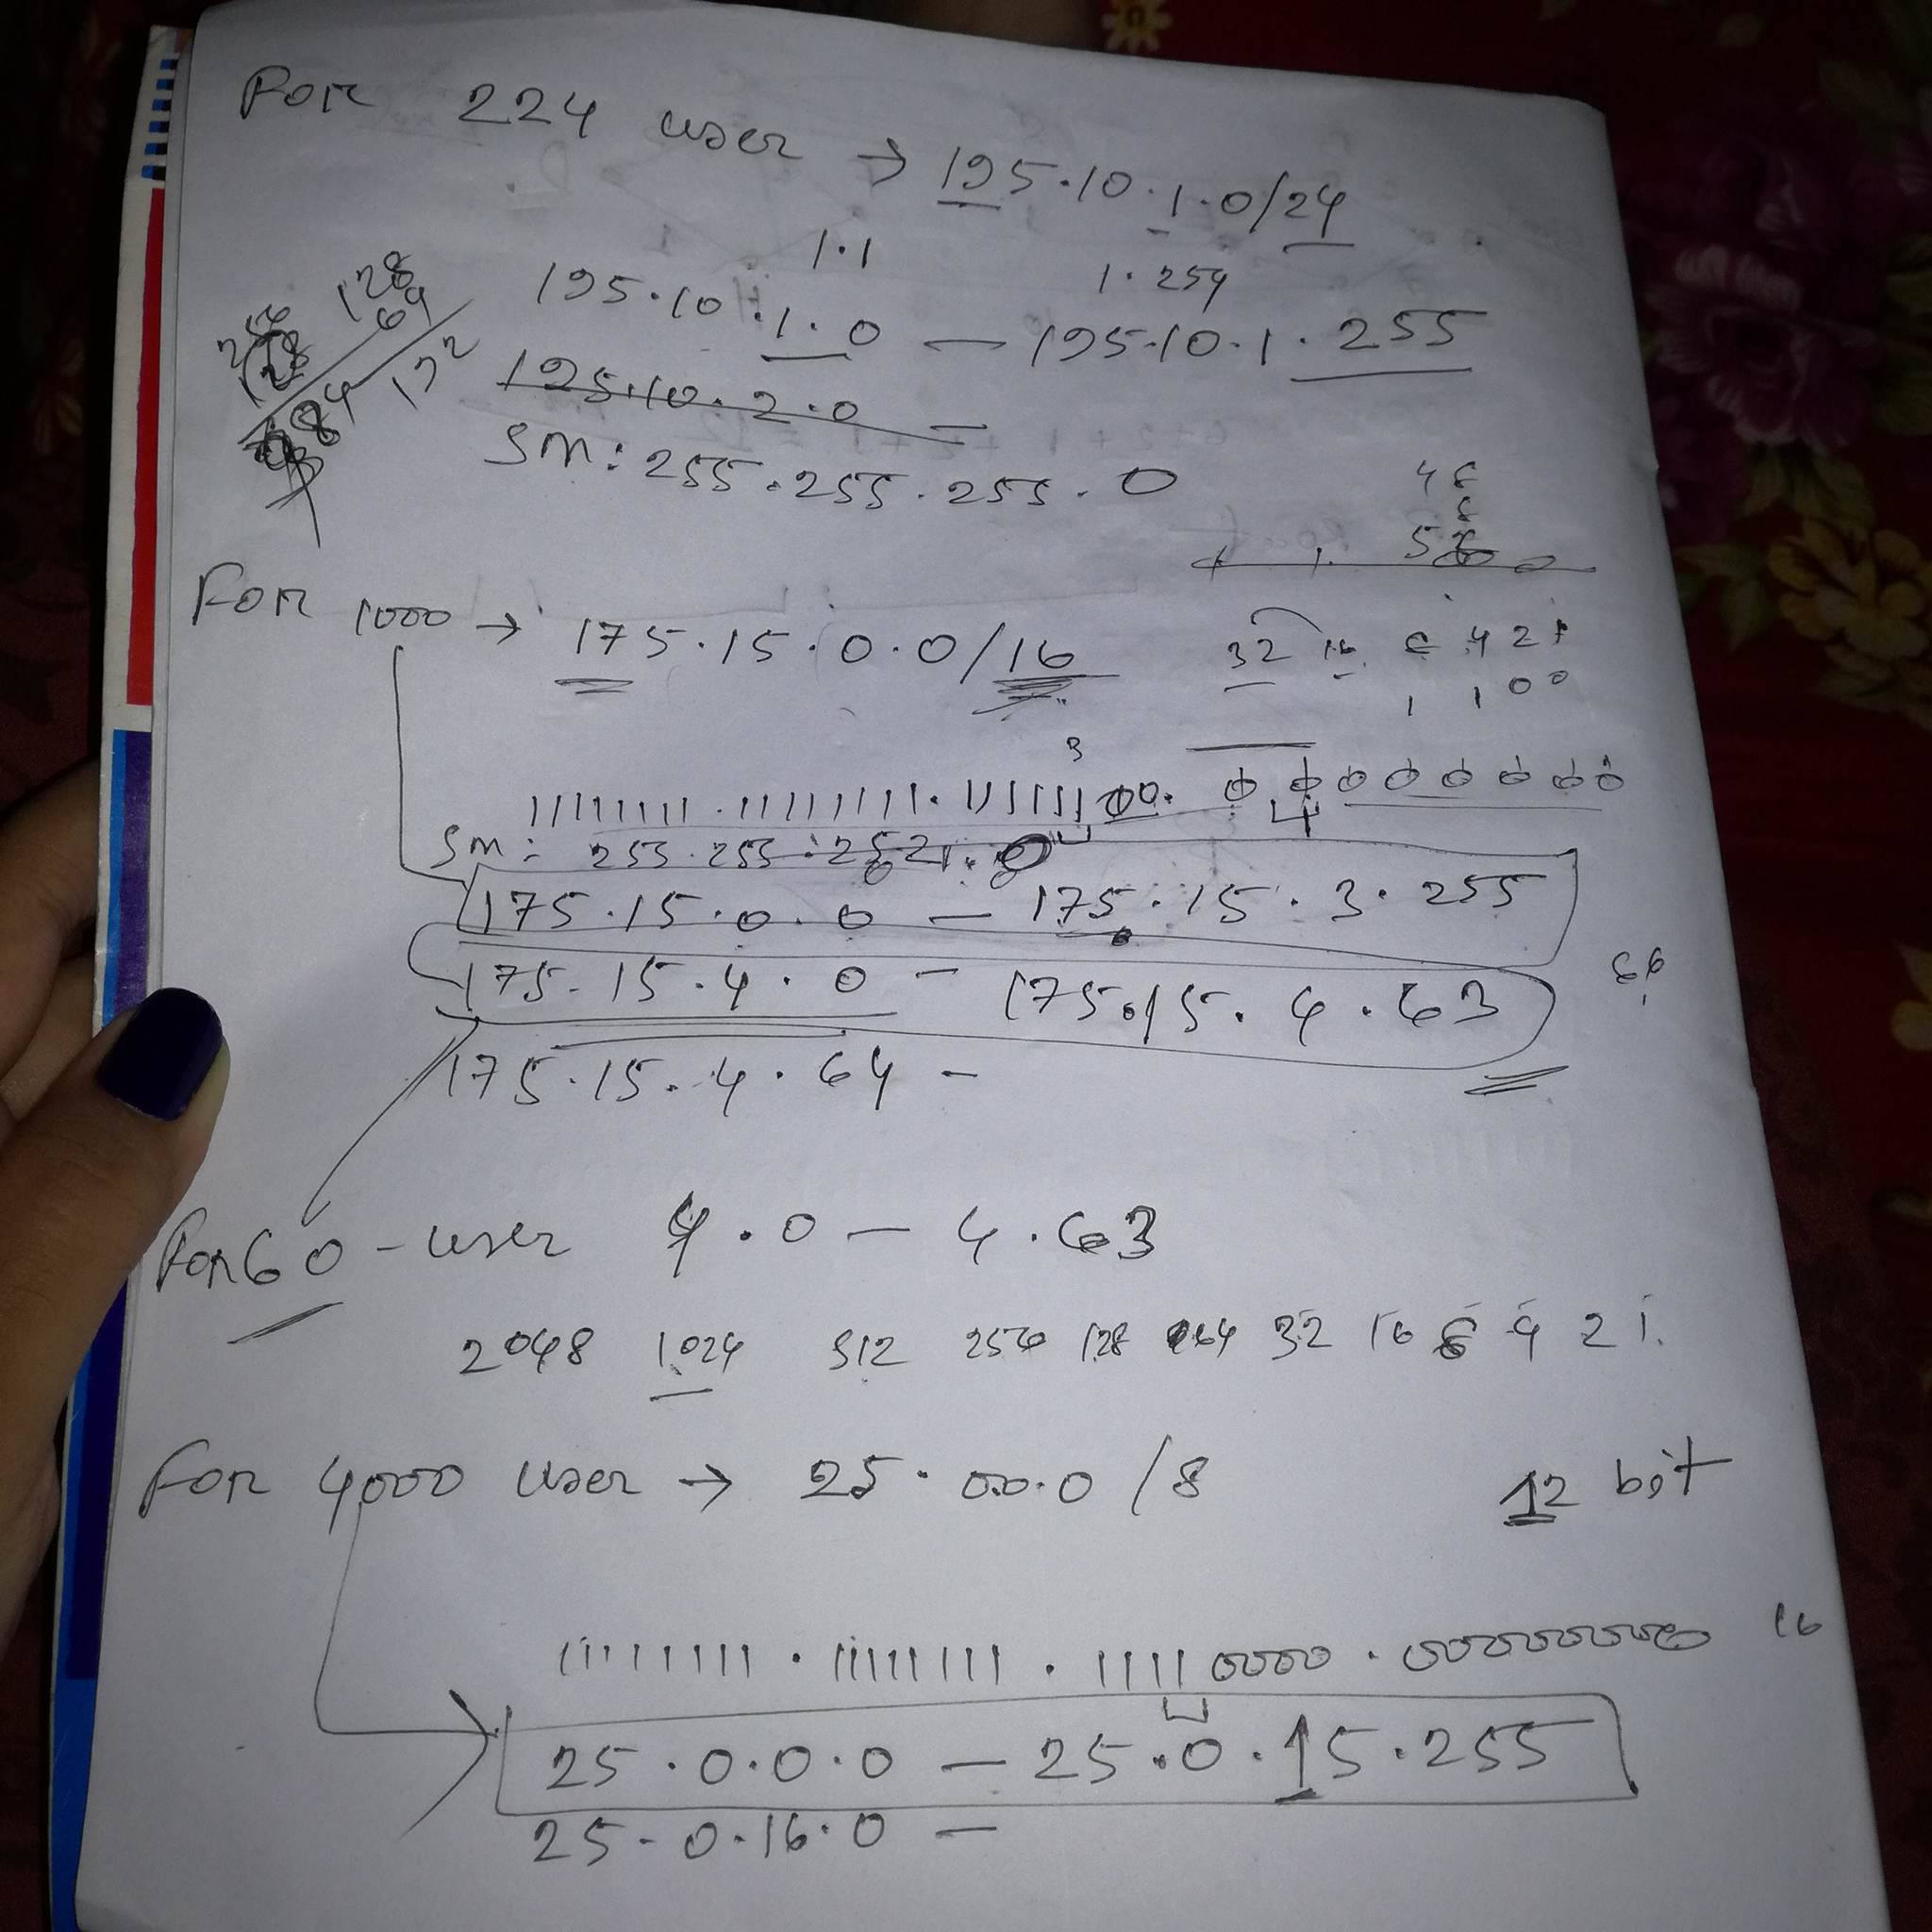 For 224 user → 195.10.1.0/24
1.1 1.254
195.10.1.0 — 195.10.1.255
128
64
192
195.10.2.0 —
SM: 255.255.255.0
For 1000 → 175.15.0.0/16
32 16 8 4 2 1
1 1 0 0
3
11111111.11111111.11111100.00000000
4
SM: 255.255.252.0
175.15.0.0 — 175.15.3.255
175.15.4.0 — 175.15.4.63
175.15.4.64 —
For 60 - user 4.0 — 4.63
2048 1024 512 256 128 64 32 16 8 4 2 1
For 4000 user → 25.0.0.0/8 12 bit
11111111.11111111.11110000.00000000 16
25.0.0.0 — 25.0.15.255
25.0.16.0 —